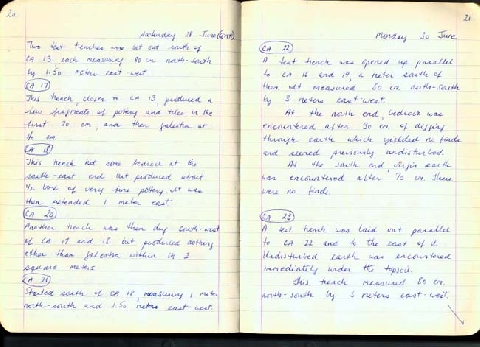 20
Saturday 28 June (cont)
Two test trenches were set out south of
CA 13 each measuring 80 cm north-south
by 1.50 metres east-west.
CA 17
This trench, closer to CA 13 produced a
few fragments of pottery and tiles in the
first 30 cm, and then
at
cm
CA 18
This trench had some bedrock at the
south-east end but produced about
1/2 box of very fine pottery. It was
then extended 1 meter east.
CA 20
Another trench was then dug south-west
of CA 17 and 18 but produced nothing
other than within its 2
square metres.
Started south of CA 18, measuring 1 meter
north-south and 1.50 metres east-west.
21
Monday 30 June
CA 22
A test trench was opened up parallel
to CA 16 and 19, a meter south of
them and measured 80 cm north-south
by 3 meters east-west.
At the north end, bedrock was
encountered after 30 cm of digging
through earth which yielded no finds
and seemed previously undisturbed.
At the south end virgin earth
was encountered after 1/2 m. There
were no finds.
CA 23
A test trench was laid out parallel
to CA 22 and to the east of it.
Undisturbed earth was encountered
immediately under the topsoil.
This trench measured 80 cm.
north-south by 3 meters east-west.